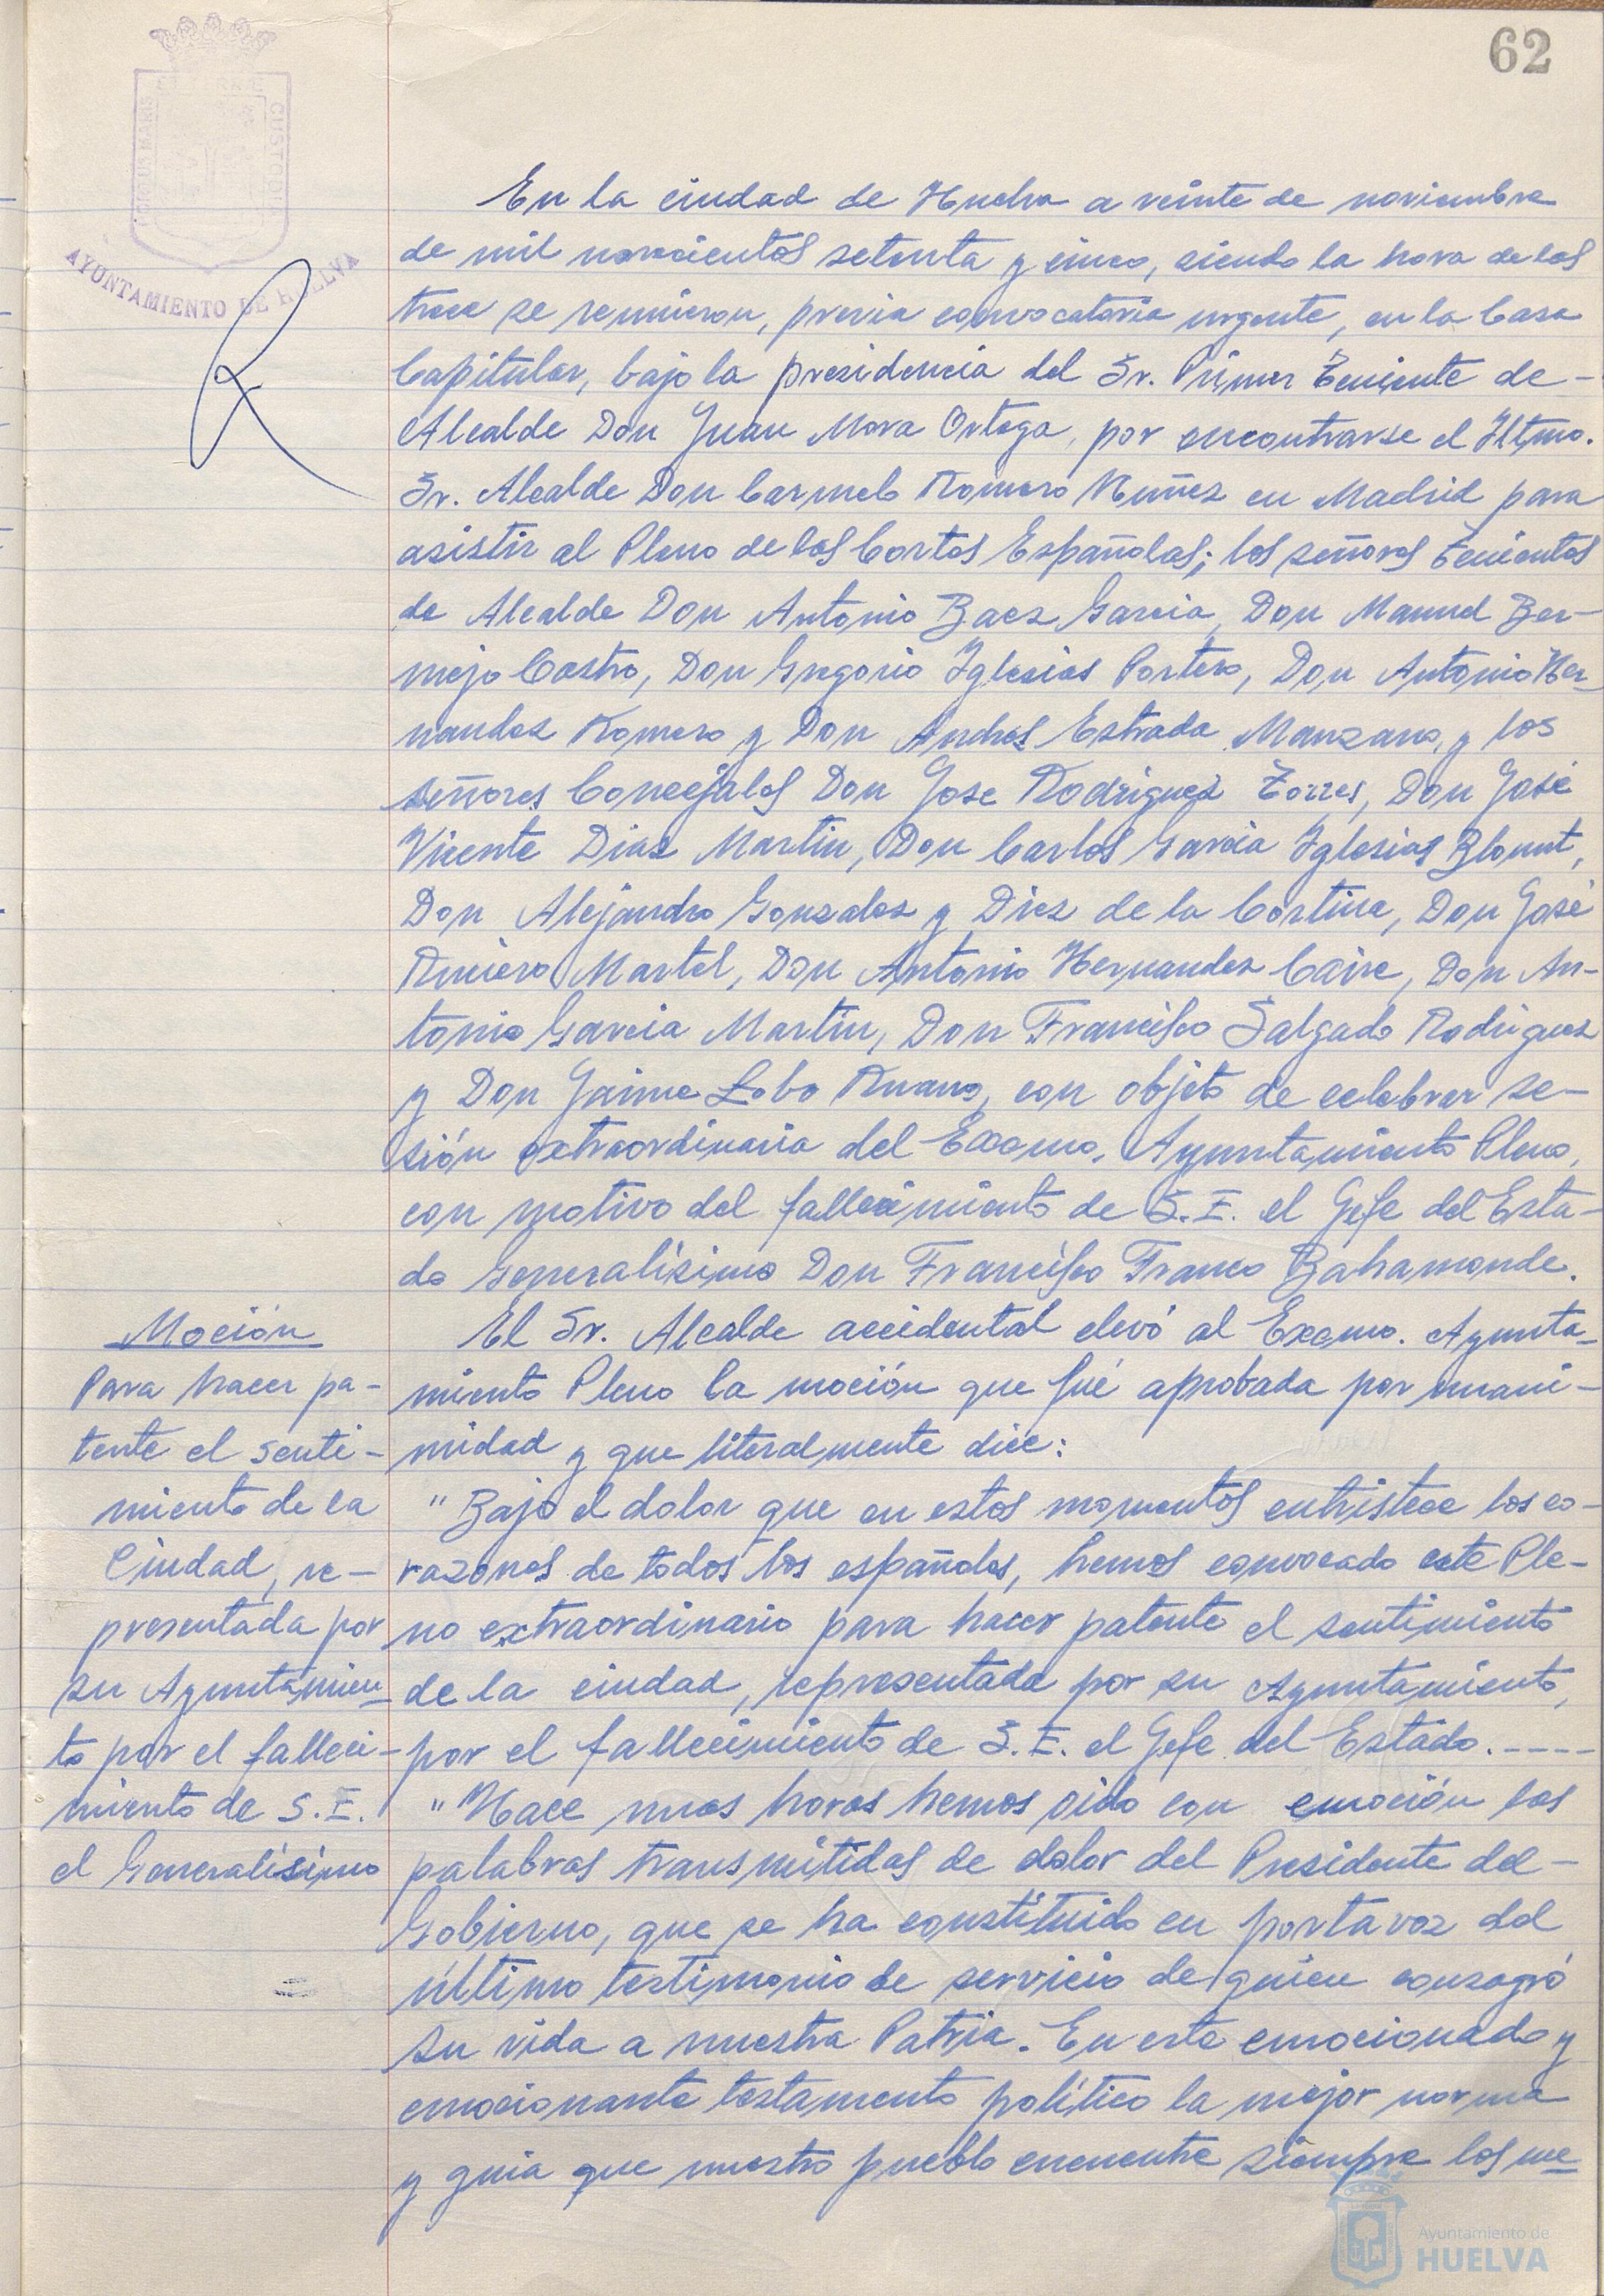 62
AYUNTAMIENTO DE HUELVA
En la ciudad de Huelva a veinte de noviembre
de mil novecientos setenta y cinco, siendo la hora de las
trece se reunieron, previa convocatoria urgente, en la Casa
Capitular, bajo la presidencia del Sr. Primer Teniente de-
Alcalde Don Juan Mora Ortega, por encontrarse el Iltmo.
Sr. Alcalde Don Carmelo Romero Nuñez en Madrid para
asistir al Pleno de las Cortes Españolas; los señores Tenientes
de Alcalde Don Antonio Baez Garcia, Don Manuel Ber-
mejo Castro, Don Gregorio Iglesias Portero, Don Antonio Her-
nandez Romero y Don Andres Estrada Manzano, y los
señores Concejales Don Jose Rodriguez Torres, Don José
Vicente Diaz Martin, Don Carlos Garcia Iglesias Blount,
Don Alejandro Gonzalez y Diez de la Cortina, Don José
Rniero Martel, Don Antonio Hernandez Caire, Don An-
tonio Garcia Martin, Don Francisco Salgado Rodriguez
y Don Jaime Lobo Ruano, con objeto de celebrar se-
sión extraordinaria del Excmo. Ayuntamiento Pleno,
con motivo del fallecimiento de S.E. el Jefe del Esta-
do Generalísimo Don Francisco Franco Bahamonde.
El Sr. Alcalde accidental elevó al Excmo. Ayunta-
miento Pleno la moción que fué aprobada por unani-
midad y que literalmente dice:
"Bajo el dolor que en estos momentos entristece los co-
razones de todos los españoles, hemos convocado este Ple-
no extraordinario para hacer patente el sentimiento
de la ciudad, representada por su Ayuntamiento,
por el fallecimiento de S.E. el Jefe del Estado.----
"Hace unas horas hemos oido con emoción las
palabras transmitidas de dolor del Presidente del-
Gobierno, que se ha constituido en portavoz del
último testimonio de servicio de quien consagró
su vida a nuestra Patria. En este emocionado y
emocionante testamento político la mejor norma
y guia que nuestro pueblo encuentre siempre los me-
Moción
Para hacer pa-
tente el senti-
miento de la
Ciudad, re-
presentada por
su Ayuntamien-
to por el falleci-
miento de S.E.
el Generalísimo
Ayuntamiento de
HUELVA